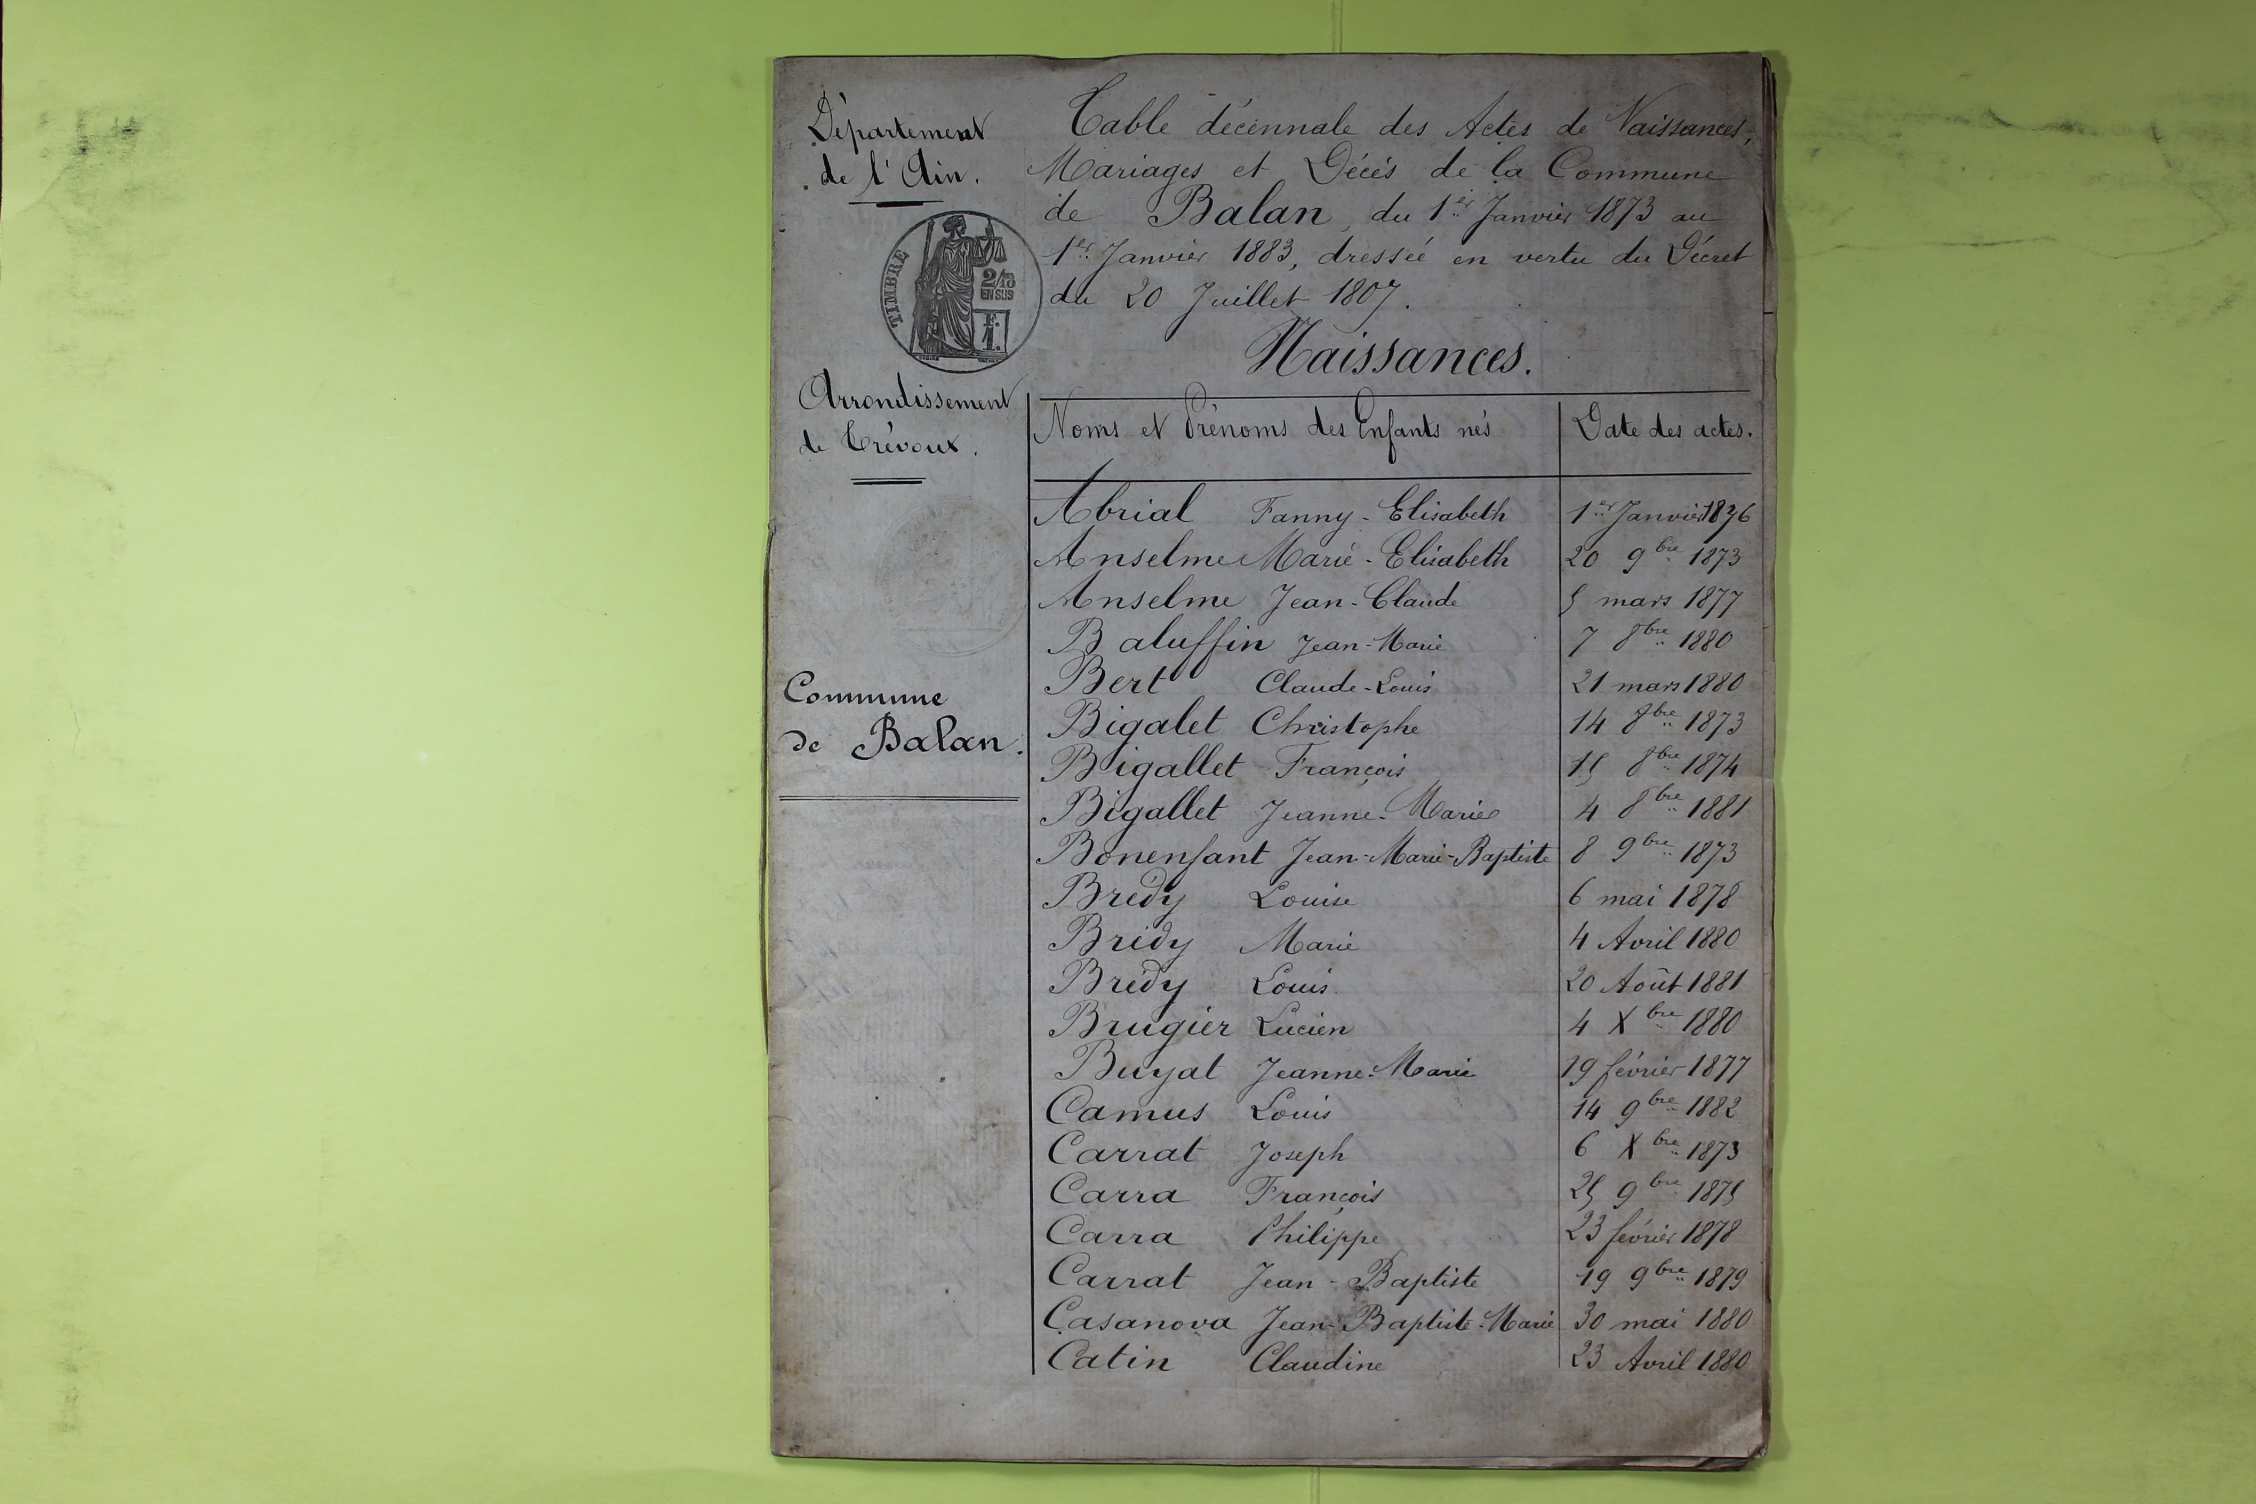 Département
de l'Ain.
TIMBRE
2/10
EN SUS
F.
1.
Arrondissement
de Trévoux.
Commune
de Balan.
Table décennale des Actes de Naissances,
Mariages et Décés de la Commune
de Balan, du 1er Janvier 1873 au
1er Janvier 1883, dressée en vertu du Décret
du 20 Juillet 1807.
Naissances.
Noms et Prénoms des Enfants nés Date des actes.
Abrial Fanny-Elisabeth 1er Janvier 1876
Anselme Marie-Elisabeth 20 9bre 1873
Anselme Jean-Claude 5 mars 1877
Baluffin Jean-Marie 7 8bre 1880
Bert Claude-Louis 21 mars 1880
Bigalet Christophe 14 8bre 1873
Bigallet François 15 8bre 1874
Bigallet Jeanne-Marie 4 8bre 1881
Bonenfant Jean-Marie-Baptiste 8 9bre 1873
Brédy Louise 6 mai 1878
Brédy Marie 4 Avril 1880
Brédy Louis 20 Août 1881
Brugier Lucien 4 Xbre 1880
Buyat Jeanne-Marie 19 février 1877
Camus Louis 14 9bre 1882
Carrat Joseph 6 Xbre 1873
Carra François 25 9bre 1875
Carra Philippe 23 février 1878
Carrat Jean-Baptiste 19 9bre 1879
Casanova Jean-Baptiste-Marie 30 mai 1880
Catin Claudine 23 Avril 1880